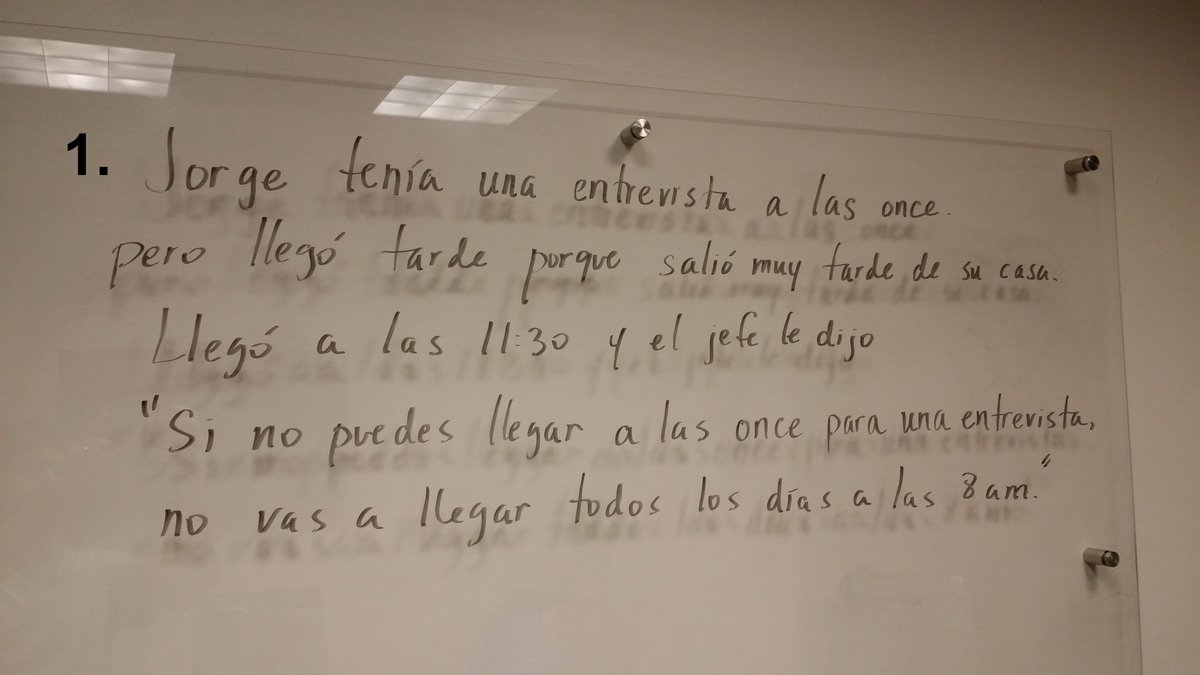 1. Jorge tenía una entrevista a las once.
pero llegó tarde porque salió muy tarde de su casa.
Llegó a las 11:30 y el jefe le dijo
"Si no puedes llegar a las once para una entrevista,
no vas a llegar todos los días a las 8 am."